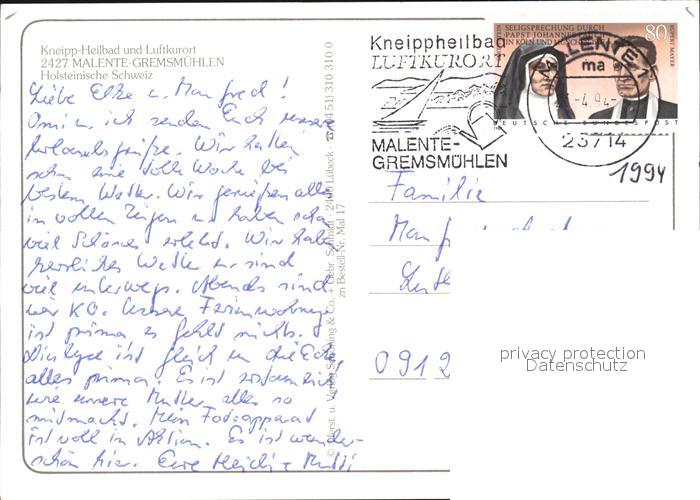 Kneipp-Heilbad und Luftkurort
2427 MALENTE-GREMSMÜHLEN
Holsteinische Schweiz
Liebe Elke u. Manfred!
Omi u. ich senden Euch unsere
Urlaubsgrüße. Wir hatten
schon eine tolle Woche bei
bestem Wetter. Wir genießen alles
in vollen Zügen und haben schon
viel Schönes erlebt. Wir haben
herrliches Wetter u. sind
viel unterwegs. Abends sind
wir KO. Unsere Ferienwohnung
ist prima es fehlt nichts.
Dialyse ist gleich um die Ecke,
alles prima. Es ist erstaunlich
wie unsere Mutter alles so
mitmacht. Mein Fotoapparat
ist voll in Aktion. Es ist wunder-
schön hier. Eure Heidi + Mutti
© Herst. u. Verlag Schöning & Co. + Gebr. Schmidt · 2400 Lübeck · ☎ (04 51) 310 310 0
zn Bestell-Nr. Mal 17
Kneippheilbad
LUFTKURORT
MALENTE-
GREMSMÜHLEN
SELIGSPRECHUNG DURCH
PAPST JOHANNES
IN KÖLN UND MÜNCHEN
80
RUPERT MAYER
DEUTSCHE BUNDESPOST
MALENTE 1
ma
-4.94-
23714
1994
Familie
0912
privacy protection
Datenschutz